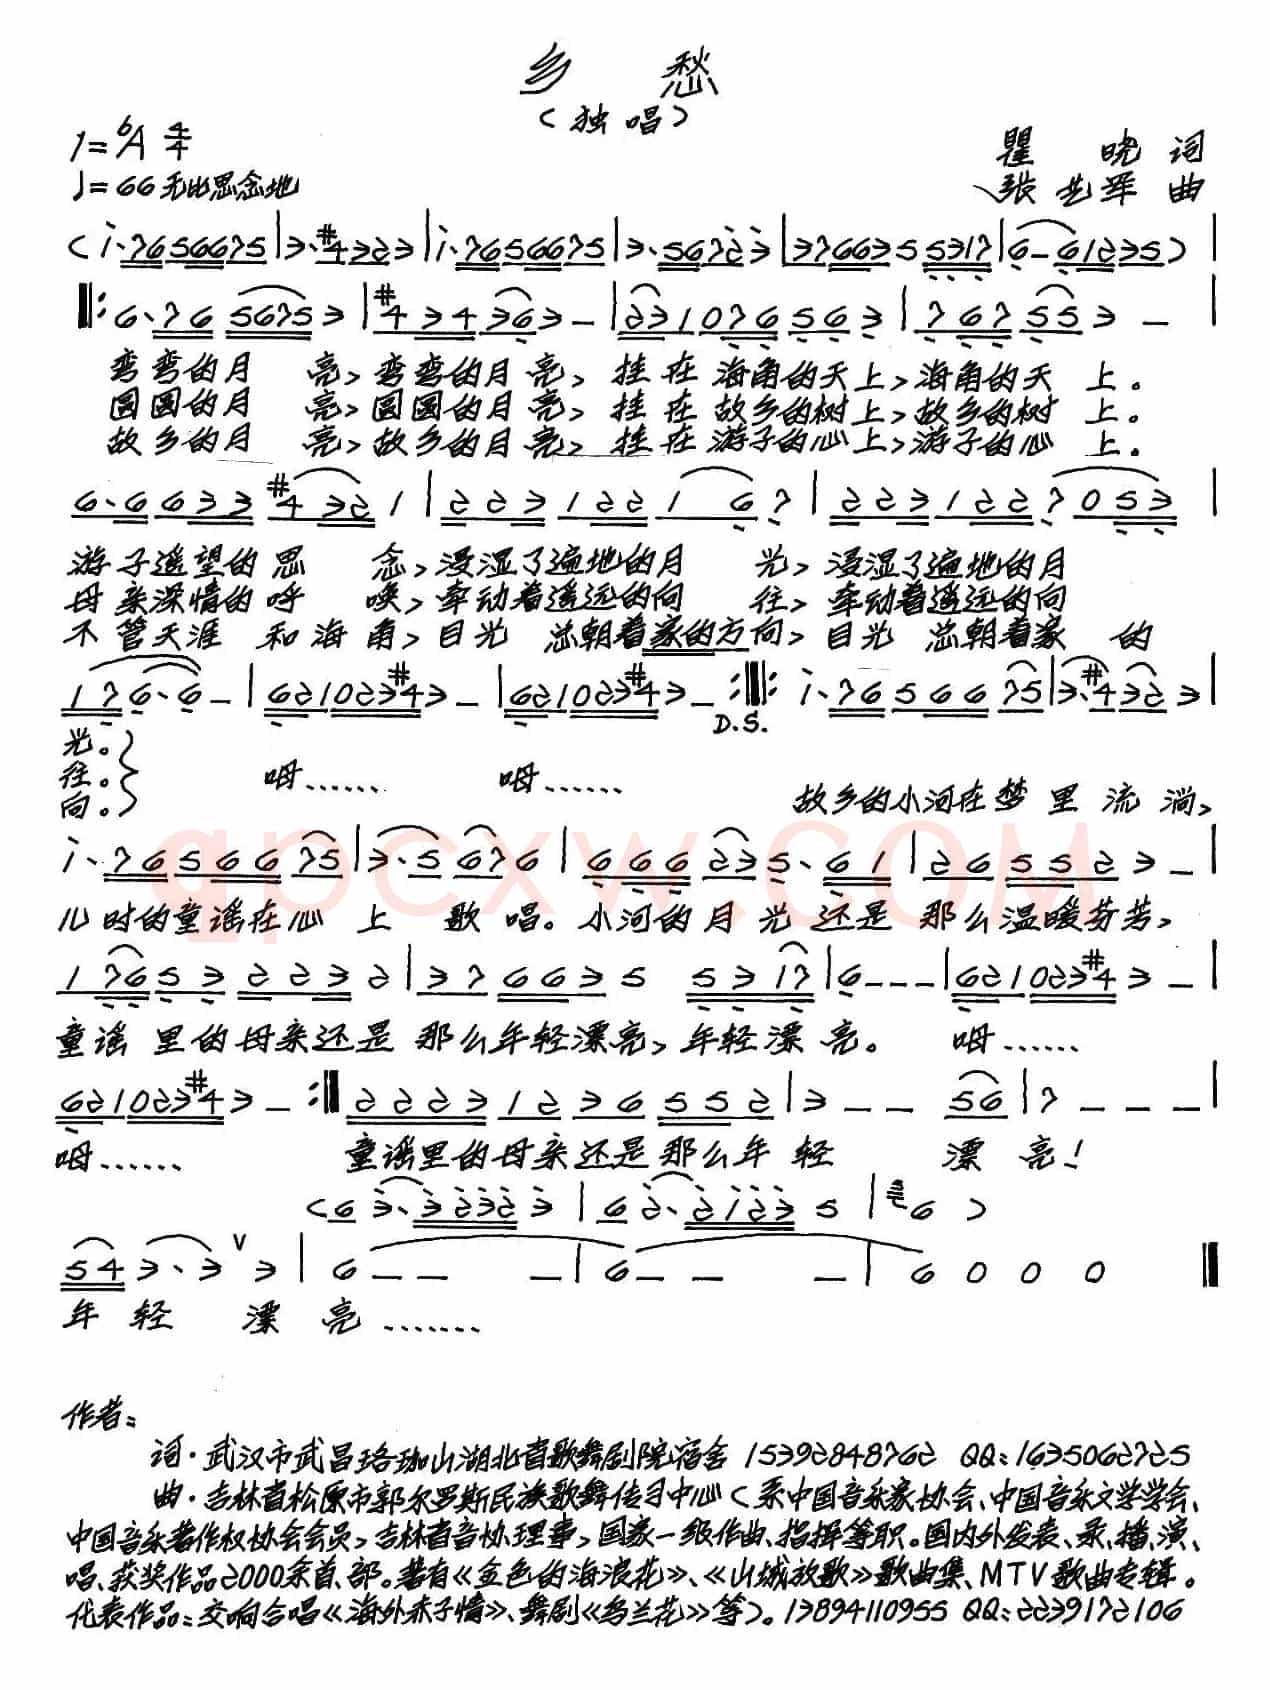 乡 愁
（独 唱）
1=♭A 4/4
瞿 晓 词
♩=66 无比思念地
张艺军 曲
(i·7656675|3·#4323|i·7656675|3·56723|3766355317|6-61235)|
‖:6·7656753|#434363-|231076563|767553-|
弯弯的月 亮,弯弯的月亮,挂在海角的天上,海角的天 上。
圆圆的月 亮,圆圆的月亮,挂在故乡的树上,故乡的树 上。
故乡的月 亮,故乡的月亮,挂在游子的心上,游子的心 上。
6·6633#4321|223122167|2231227053|
游子遥望的思 念,浸湿了遍地的月 光,浸湿了遍地的月
母亲深情的呼 唤,牵动着遥远的向 往,牵动着遥远的向
不管天涯 和海角,目光 总朝着家的方向,目光 总朝着家 的
176·6-|621023#43-|621023#43-:‖:i·7656675|3·#4323|
D.S.
光。
往。
向。
呣…… 呣……
故乡的小河在梦里流淌,
qpcxw.COM
i·7656675|3·5676|6662335·61|265523-|
儿时的童谣在心上 歌唱。小河的月光还是那么温暖芬芳,
176532232|3766355317|6---|621023#43-|
童谣里的母亲还是那么年轻漂亮,年轻漂亮。 呣……
621023#43-:‖22231236552|3--56|7---|
呣…… 童谣里的母亲还是那么年轻 漂亮!
(63·32323|62·21235|6)
543·3∨3|6---|6---|6000‖
年轻 漂亮……
作者:
词·武汉市武昌珞珈山湖北省歌舞剧院宿舍 15392848762 QQ:1635062725
曲·吉林省松原市郭尔罗斯民族歌舞传习中心(系中国音乐家协会、中国音乐文学学会、
中国音乐著作权协会会员,吉林省音协理事,国家一级作曲、指挥等职。国内外发表、录、播、演、
唱、获奖作品2000余首、部。著有《金色的海浪花》、《山城放歌》歌曲集、MTV歌曲专辑。
代表作品:交响合唱《海外赤子情》、舞剧《乌兰花》等)。13894110955 QQ:2239172106